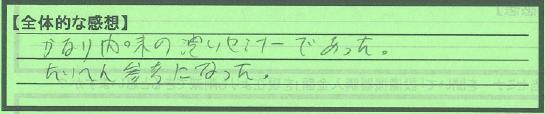 【全体的な感想】
かなり内味の濃いセミナーであった。
たいへん参考になった。